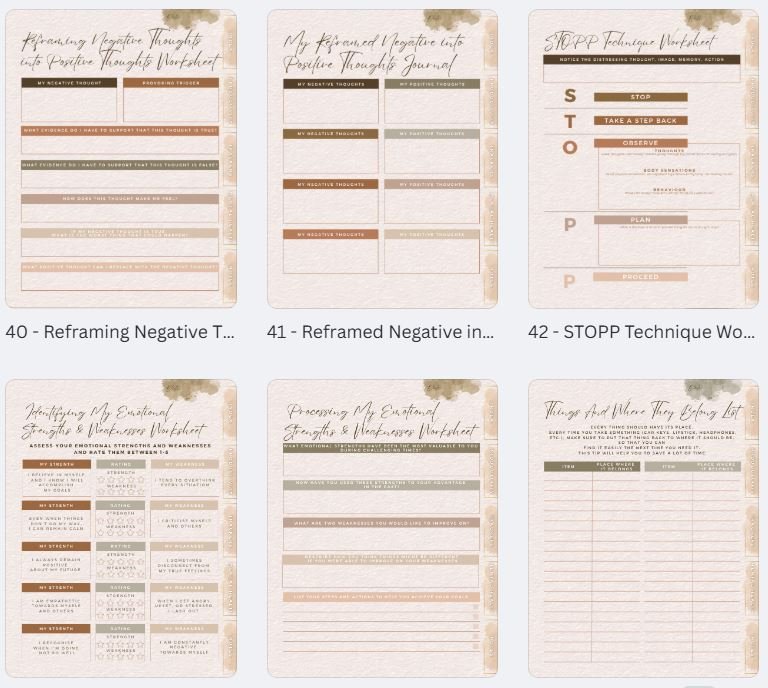 Reframing Negative Thoughts
into Positive Thoughts Worksheet
MY NEGATIVE THOUGHT
PROVOKING TRIGGER
WHAT EVIDENCE DO I HAVE TO SUPPORT THAT THIS THOUGHT IS TRUE?
WHAT EVIDENCE DO I HAVE TO SUPPORT THAT THIS THOUGHT IS FALSE?
HOW DOES THIS THOUGHT MAKE ME FEEL?
IF MY NEGATIVE THOUGHT IS TRUE,
WHAT IS THE WORSE THING THAT COULD HAPPEN?
WHAT POSITIVE THOUGHT CAN I REPLACE WITH THE NEGATIVE THOUGHT?
40 - Reframing Negative T...
My Reframed Negative into
Positive Thoughts Journal
MY NEGATIVE THOUGHTS
MY POSITIVE THOUGHTS
MY NEGATIVE THOUGHTS
MY POSITIVE THOUGHTS
MY NEGATIVE THOUGHTS
MY POSITIVE THOUGHTS
MY NEGATIVE THOUGHTS
MY POSITIVE THOUGHTS
41 - Reframed Negative in...
STOPP Technique Worksheet
NOTICE THE DISTRESSING THOUGHT, IMAGE, MEMORY, ACTION
S STOP
T TAKE A STEP BACK
O OBSERVE
THOUGHTS
BODY SENSATIONS
BEHAVIOUR
P PLAN
P PROCEED
42 - STOPP Technique Wo...
Identifying My Emotional
Strengths & Weaknesses Worksheet
ASSESS YOUR EMOTIONAL STRENGTHS AND WEAKNESSES
AND RATE THEM BETWEEN 1-5
MY STRENTH
RATING
MY WEAKNESS
I BELIEVE IN MYSELF
AND I KNOW I WILL
ACCOMPLISH
MY GOALS
STRENGTH
WEAKNESS
I TEND TO OVERTHINK
EVERY SITUATION
MY STRENTH
RATING
MY WEAKNESS
EVEN WHEN THINGS
DON'T GO MY WAY,
I CAN REMAIN CALM
STRENGTH
WEAKNESS
I CRITICISE MYSELF
AND OTHERS
MY STRENTH
RATING
MY WEAKNESS
I ALWAYS REMAIN
POSITIVE
ABOUT MY FUTURE
STRENGTH
WEAKNESS
I SOMETIMES
DISCONNECT FROM
MY TRUE FEELINGS
MY STRENTH
RATING
MY WEAKNESS
I AM EMPATHETIC
TOWARDS MYSELF
AND OTHERS
STRENGTH
WEAKNESS
WHEN I GET ANGRY,
UPSET, OR STRESSED
I LASH OUT
MY STRENTH
RATING
MY WEAKNESS
I RECOGNISE
WHEN I'M DOING
NOT SO WELL
STRENGTH
WEAKNESS
I AM CONSTANTLY
NEGATIVE
TOWARDS MYSELF
Processing My Emotional
Strengths & Weaknesses Worksheet
WHAT EMOTIONAL STRENGTHS HAVE BEEN THE MOST VALUABLE TO YOU
DURING CHALLENGING TIMES?
HOW HAVE YOU USED THESE STRENGTHS TO YOUR ADVANTAGE
IN THE PAST?
WHAT ARE TWO WEAKNESSES YOU WOULD LIKE TO IMPROVE ON?
IF YOU WERE ABLE TO IMPROVE ON YOUR WEAKNESSES
LIST YOUR STEPS AND ACTIONS TO HELP YOU ACHIEVE YOUR GOALS
Things And Where They Belong List
EVERY THING SHOULD HAVE ITS PLACE.
EVERY TIME YOU TAKE SOMETHING (CAR KEYS, LIPSTICK, HEADPHONES,
ETC.), MAKE SURE TO PUT THAT THING BACK TO WHERE IT SHOULD BE,
SO THAT YOU CAN
FIND IT EASILY THE NEXT TIME YOU NEED IT.
THIS TIP WILL HELP YOU TO SAVE A LOT OF TIME
ITEM
PLACE WHERE
IT BELONGS
ITEM
PLACE WHERE
IT BELONGS